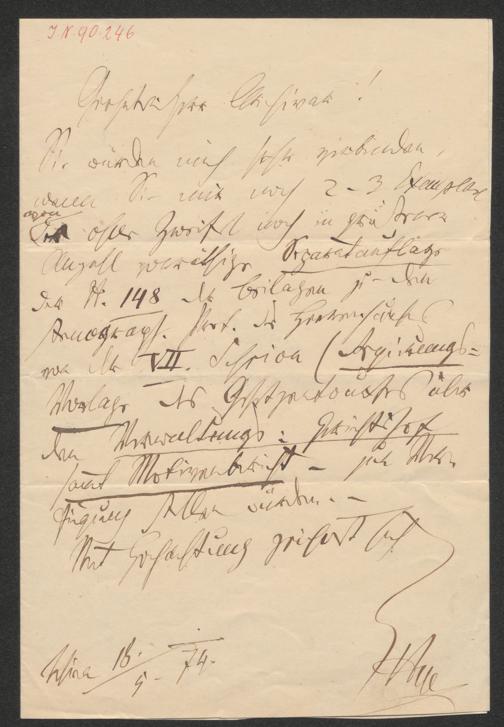 I.N. 90.246
Geehrter Herr Archivar!
Sie würden mich sehr verbinden,
wenn Sie mir noch 2–3 Exemplare
der ohne Zweifel noch in größerer
Anzahl vorräthigen Separatauflage
der N. 148 der Beilagen zu den
stenograph. Prot. des Herrenhauses
von der VII. Session (Regierungs=
Vorlage des Gesetzentwurfes über
den Verwaltungs=Gerichtshof
sammt Motivenbericht – zur Ver-
fügung stellen würden. –
Mit Hochachtung zeichnet sich
Wien 18./5. 74.